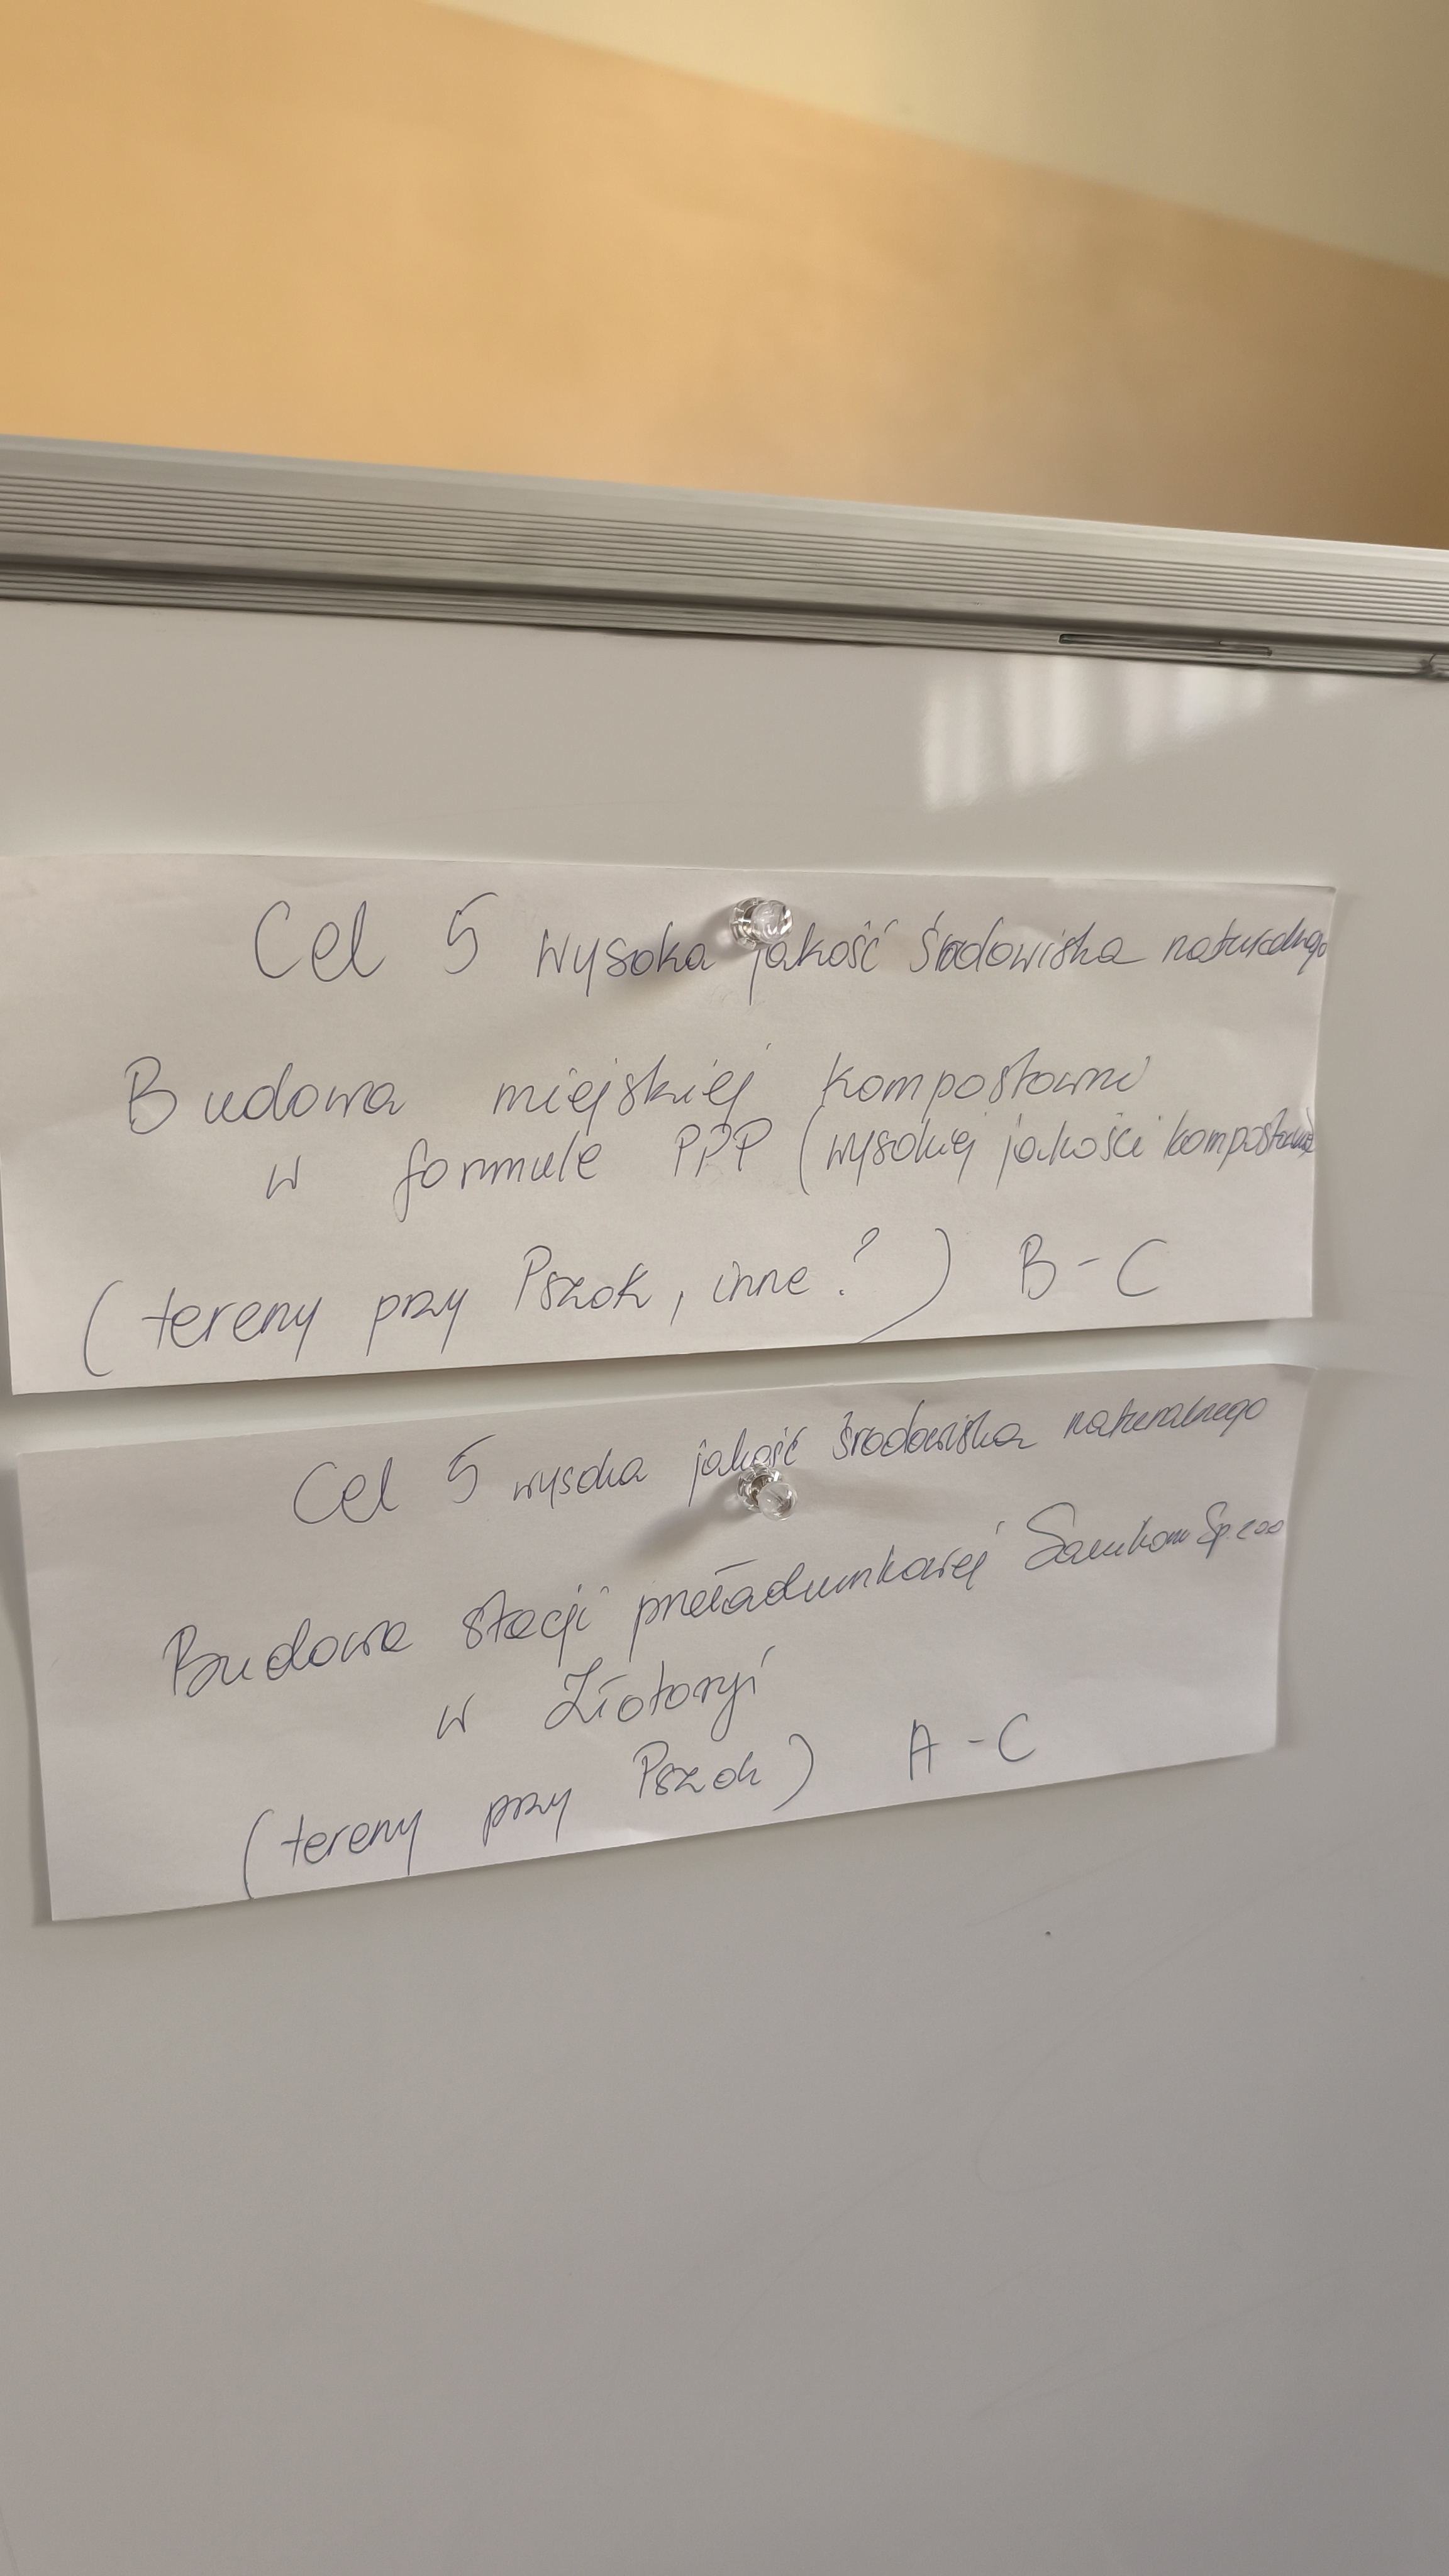 Cel 5 wysoka jakość środowiska naturalnego
Budowa miejskiej kompostowni
w formule PPP (wysokiej jakości kompostownia
(tereny przy Pszok, inne?) B-C
Cel 5 wysoka jakość środowiska naturalnego
Budowa stacji przeładunkowej Sp. z o o
w Złotoryi
(tereny przy Pszok) A-C